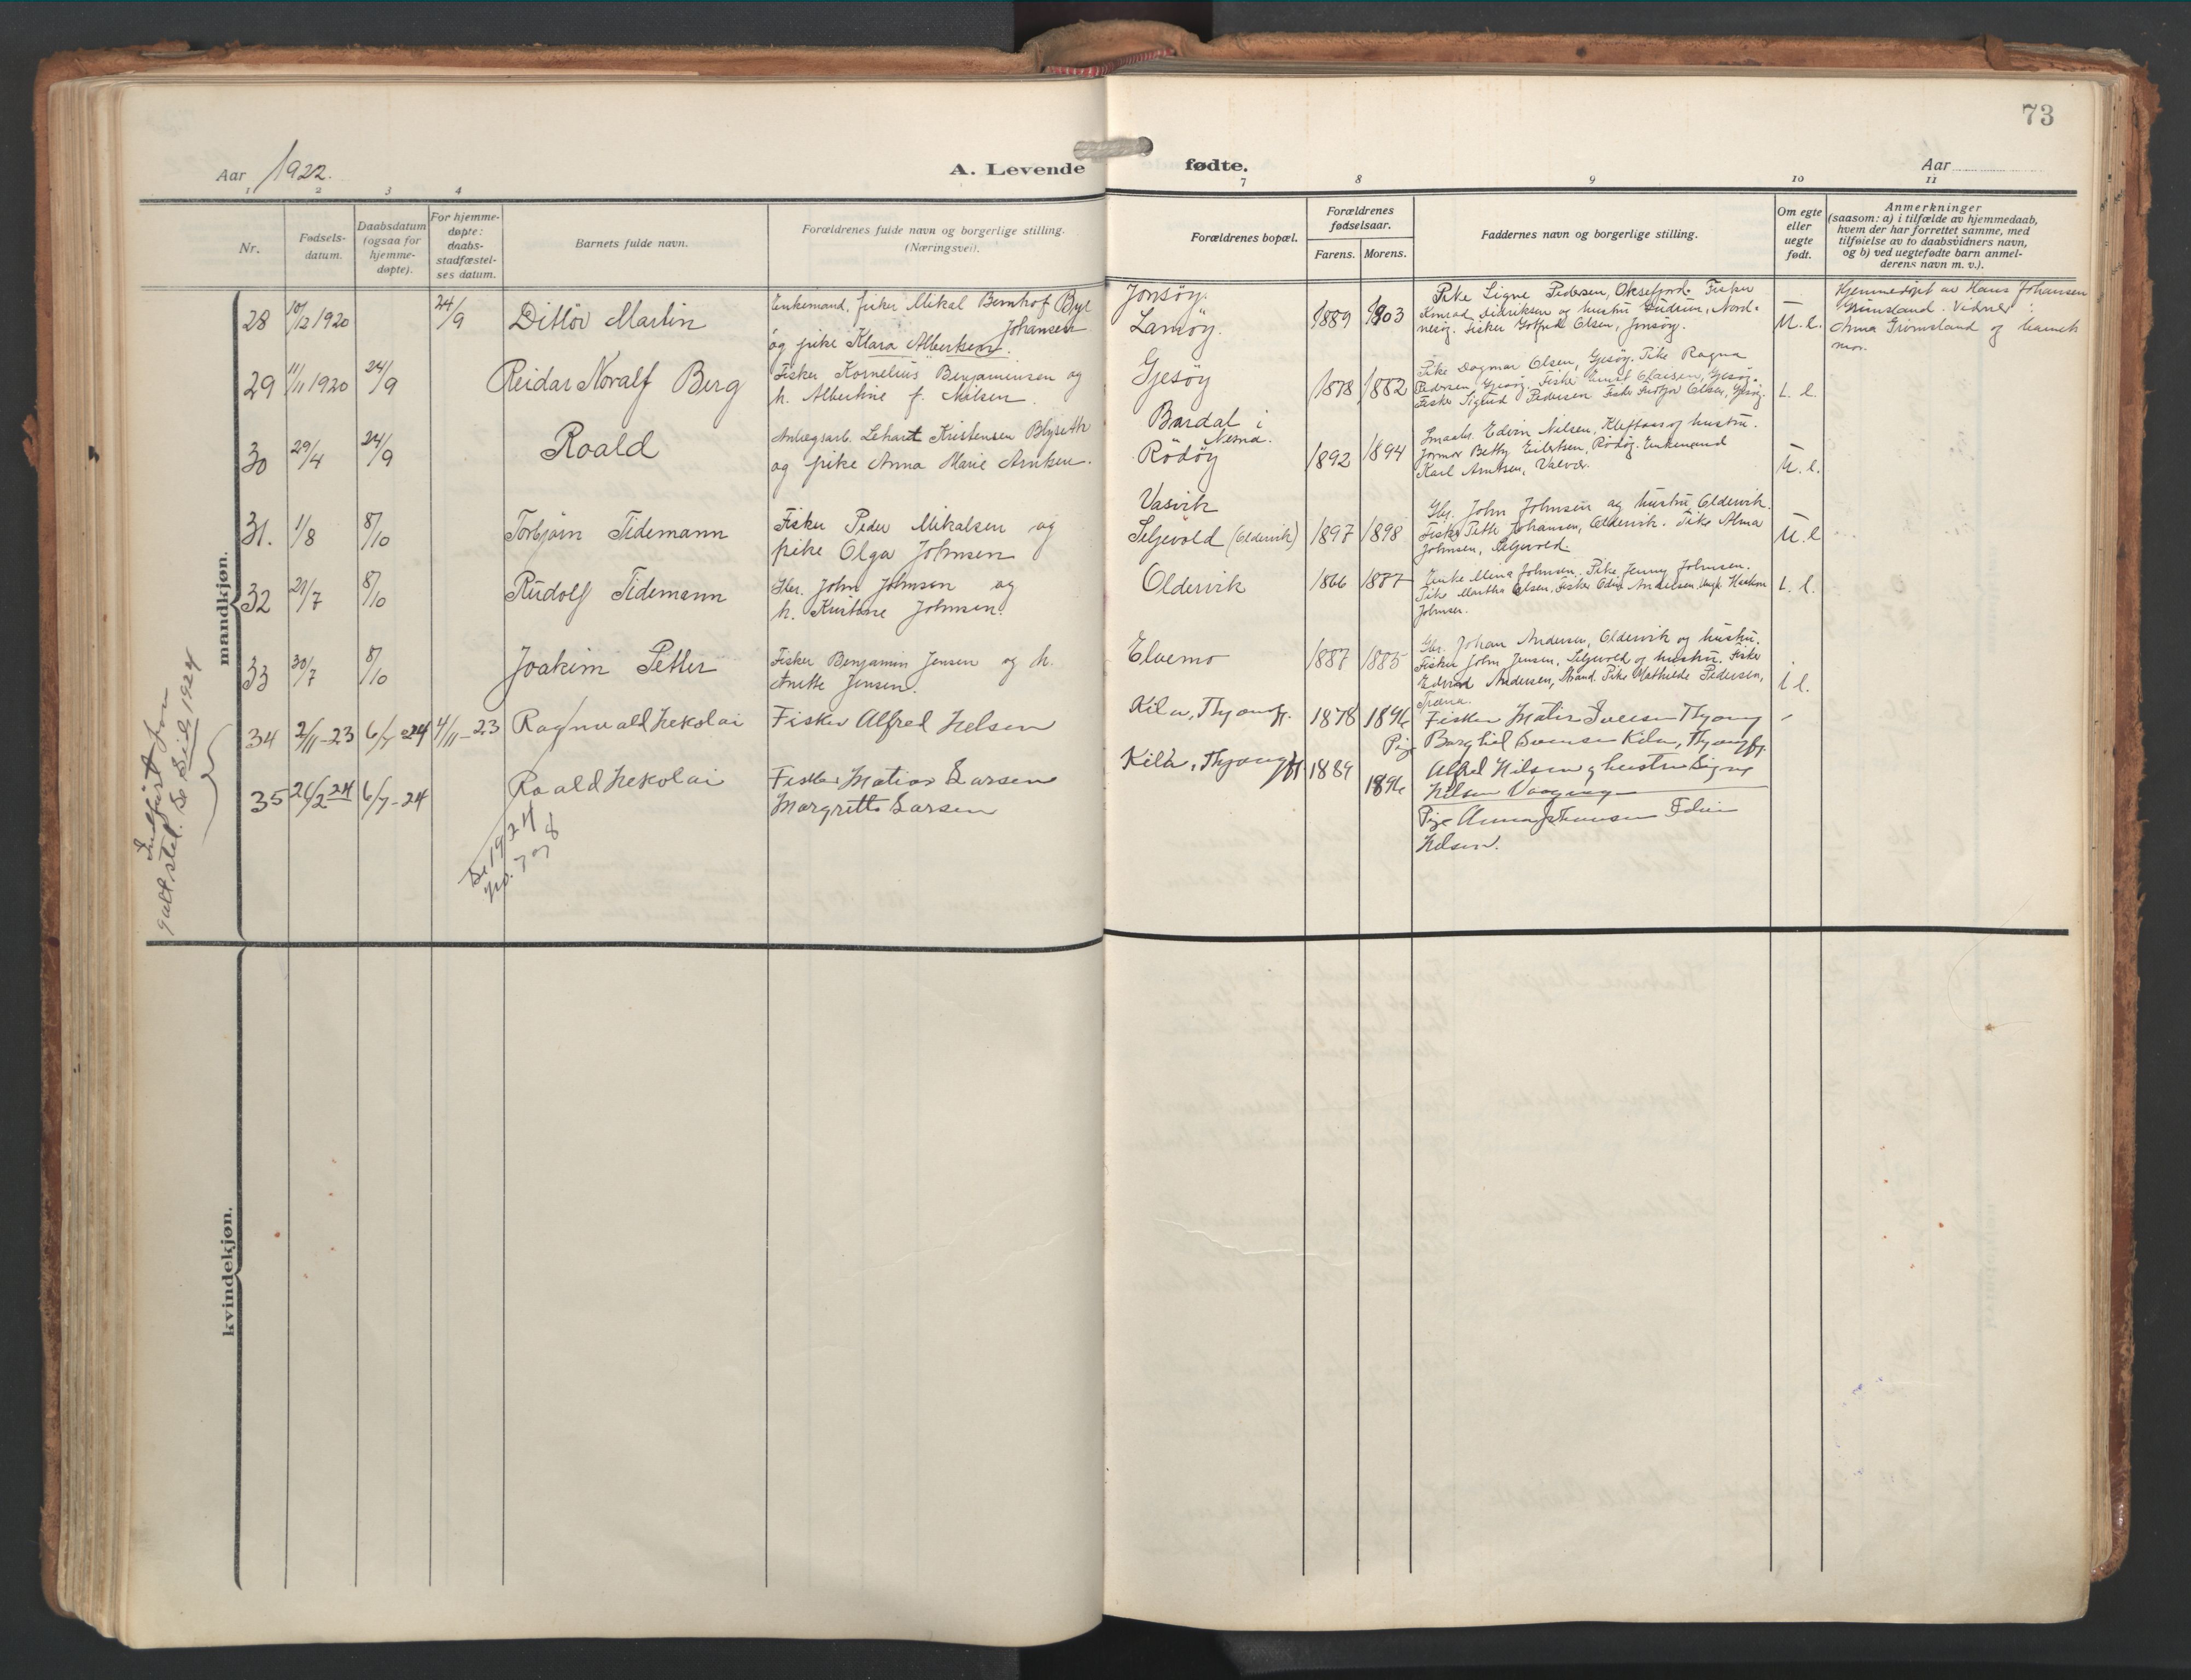 73
Aar 1922.
A. Levende
fødte.
Aar
1 2 3 4
7 8 9 10 11
Nr.
Fødsels-
datum.
Daabsdatum
(ogsaa for
hjemme-
døpte).
For hjemme-
døpte:
daabs-
stadfæstel-
ses datum.
Barnets fulde navn.
Forældrenes fulde navn og borgerlige stilling.
(Næringsvei).
Forældrenes bopæl.
Forældrenes
fødselsaar.
Farens. Morens.
Faddernes navn og borgerlige stilling.
Om egte
eller
uegte
født.
Anmerkninger
(saasom: a) i tilfælde av hjemmedaab,
hvem der har forrettet samme, med
tilføielse av to daabsvidners navn,
og b) ved uegtefødte barn anmel-
derens navn m. v.).
mandkjøn.
28 10/12 1920 24/9 Ditlöv Martin
Enkemand, fisker Mikal Bernhof
Johansen
og pike Klara Albertsen.
Jonsöy.
Lamöy.
1889 1903
Pike Signe Pedersen, Oksefjord. Fisker
Konrad Didriksen og hustru Gudrun, Nord-
nesöy. Fisker Golfred Olsen, Jonsöy.
U. e.
Hjemmedöpt av Hans Johansen
Grimsland. Vidner:
Anna Grimsland og barnets
mor.
29 11/11 1920 24/9 Reidar Noralf Berg
Fisker Kornelius Benjaminsen og
h. Albertine f. Nilsen.
Gjesöy
1878 1882
Pike Dagmar Olsen, Gjesöy. Pike Ragna
Pedersen, Gjesöy. Fisker Ernst Olaisen, Gjesöy.
Fisker Sigurd Pedersen Fisker Fridtjof Olsen, Gjesöy.
L. e.
30 29/4 24/9 Roald
Anlægsarb. Lehardt Kristensen Blyseth
og pike Anna Marie Arntsen.
Bardal i
Nesna.
Rödöy
1892 1894
Smaabr. Edvin Nilsen, Kleftaas og hustru.
Jormor Betty Eilertsen, Rödöy. Enkemand
Karl Arntsen, Valvær.
U. e.
31. 1/8 8/10 Torbjörn Tidemann
Fisker Peder Mikalsen og
pike Olga Johnsen
Vasvik
Seljevold (Oldervik)
1897 1898
Gbr. John Johnsen og hustru, Oldervik.
Fisker Petter Johansen, Oldervik. Pike Alma
Johnsen, Seljevold
U. e
32 21/7 8/10 Rudolf Tidemann
Gbr. John Johnsen og
h. Kristine Johnsen.
Oldervik
1866 1887
Enke Mina Johnsen. Pike Jenny Johnsen.
Pike Martha Olsen, Fisker Odin Andersen, Ungk. Haakon
Johnsen.
L. e.
33 30/7 8/10 Joakim Petter
Fisker Benjamin Jensen og h.
Anette Jensen.
Elvemo
1887 1885
Gbr. Johan Andersen, Oldervik og hustru.
Fisker John Jensen, Seljevold og hustru. Fisker
Edvard Andersen, Strand. Pike Mathilde Pedersen,
Træna.
L e.
34 2/11-23 6/7-24 4/11-23 Ragnvald Nekolai
Fisker Alfred Nelsen
Kila, Thjongsf.
1878 1896
Fisker Matis Svensen Thjong
Pige Borghild Svensen Kila, Thjongsfj.
35 26/2 24 6/7-24 Roald Nekolai
Fisker Matias Larsen
Margrette Larsen
Kila, Thjongsfj.
1889 1896
Alfred Nilsen og hustru Signe
Nelsen Vaagaug
Pige Anna Johansen Edvin
Nelsen.
Se 1924
No. 7 og 8
Indført paa
galt sted. Se Side 1924
kvindekjøn.